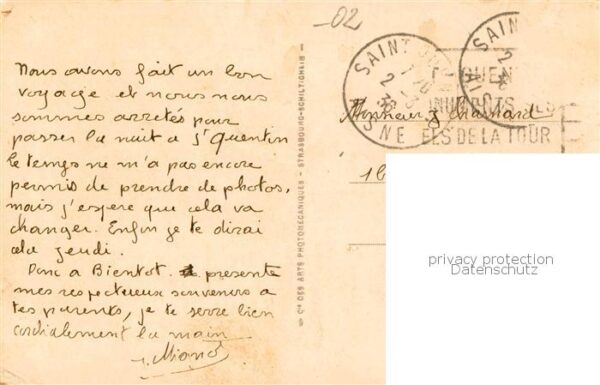 -02
Nous avons fait un bon
voyage et nous nous
sommes arretés pour
passer la nuit a St Quentin
le temps ne m'a pas encore
permis de prendre de photos,
mais j'espere que cela va
changer. Enfin je te dirai
cela jeudi.
Donc a Bientot. presente
mes respectueux souvenirs a
tes parents, je te serre bien
cordialement la main
Cie DES ARTS PHOTOMECANIQUES - STRASBOURG-SCHILTIGHEIM
SAINT QUENTIN
AISNE
QUEN
ELS DE LA TOUR
Monsieur J
16
privacy protection
Datenschutz